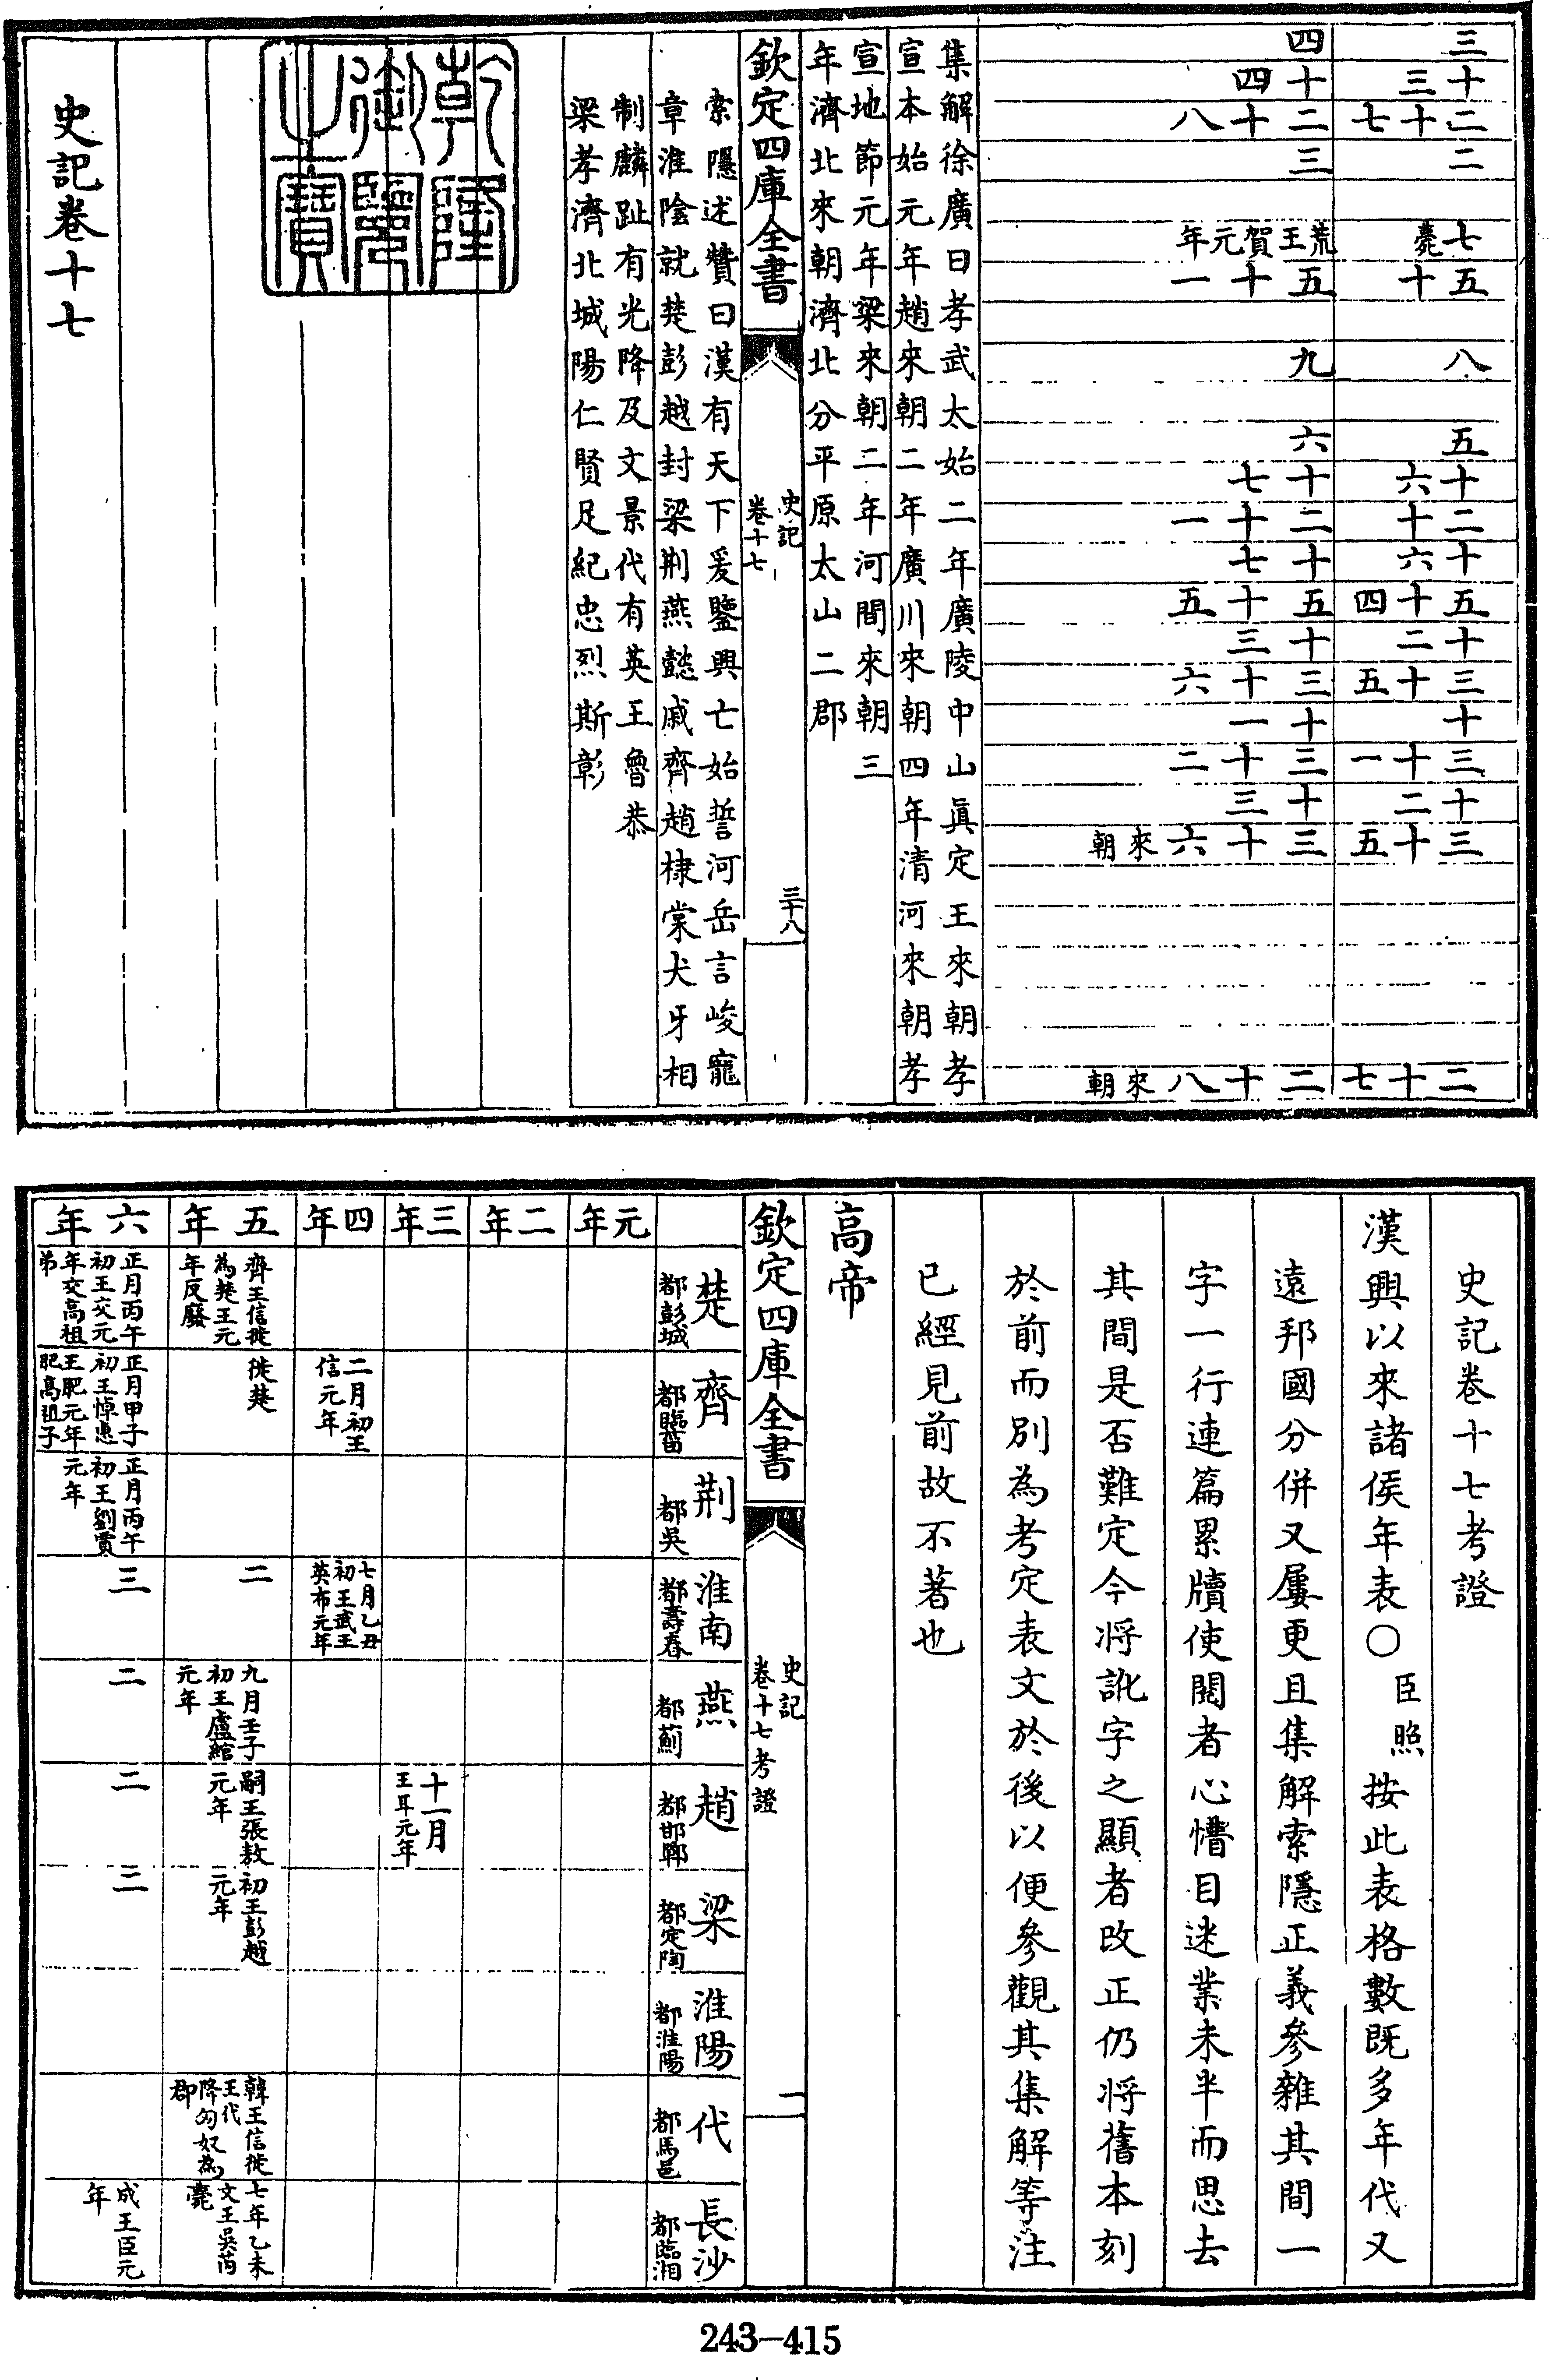 三
十三
二十七
二
七薨
五十
八
五
十六
二十
十六
五十四
十二
三十五
十
三十一
十二
三十五
二十七
四
十四
二十八
三
荒王賀元年
五十一
九
六
十七
二十一
十七
五十五
十三
三十六
十一
三十二
十三
三十六來朝
二十八來朝
集解徐廣曰孝武太始二年廣陵中山真定王來朝孝
宣本始元年趙來朝二年廣川來朝四年清河來朝孝
宣地節元年梁來朝二年河間來朝三
年濟北來朝濟北分平原太山二郡
欽定四庫全書
史記
卷十七
三十八
索隱述贊曰漢有天下爰鑒興亡始誓河岳言峻寵
章淮陰就楚彭越封梁荆燕懿戚齊趙棣棠犬牙相
制麟趾有光降及文景代有英王魯恭
梁孝濟北城陽仁賢足紀忠烈斯彰
乾隆
御覽
之寶
史記卷十七
史記卷十七考證
漢興以來諸侯年表〇臣照按此表格數既多年代又
遠邦國分併又屢更且集解索隱正義參雜其間一
字一行連篇累牘使閱者心懵目迷業未半而思去
其間是否難定今將訛字之顯者改正仍將舊本刻
於前而別為考定表文於後以便參觀其集解等注
已經見前故不著也
高帝
欽定四庫全書
史記
卷十七考證
一
楚
都彭城
齊
都臨菑
荆
都吳
淮南
都壽春
燕
都薊
趙
都邯鄲
梁
都定陶
淮陽
都淮陽
代
都馬邑
長沙
都臨湘
元年
二年
三年
十一月
王耳元年
四年
二月初王
信元年
七月乙丑
初王武王
英布元年
五年
齊王信徙
為楚王元
年反廢
徙楚
二
九月壬子
初王盧綰
元年
嗣王張敖
元年
初王彭越
元年
韓王信徙
王代
降匈奴為
郡
七年乙未
文王吳芮
薨
六年
正月丙午
初王交元
年交高祖
弟
正月甲子
初王悼惠
王肥元年
肥高祖子
正月丙午
初王劉賈
元年
三
二
二
二
成王臣元
年
243-415